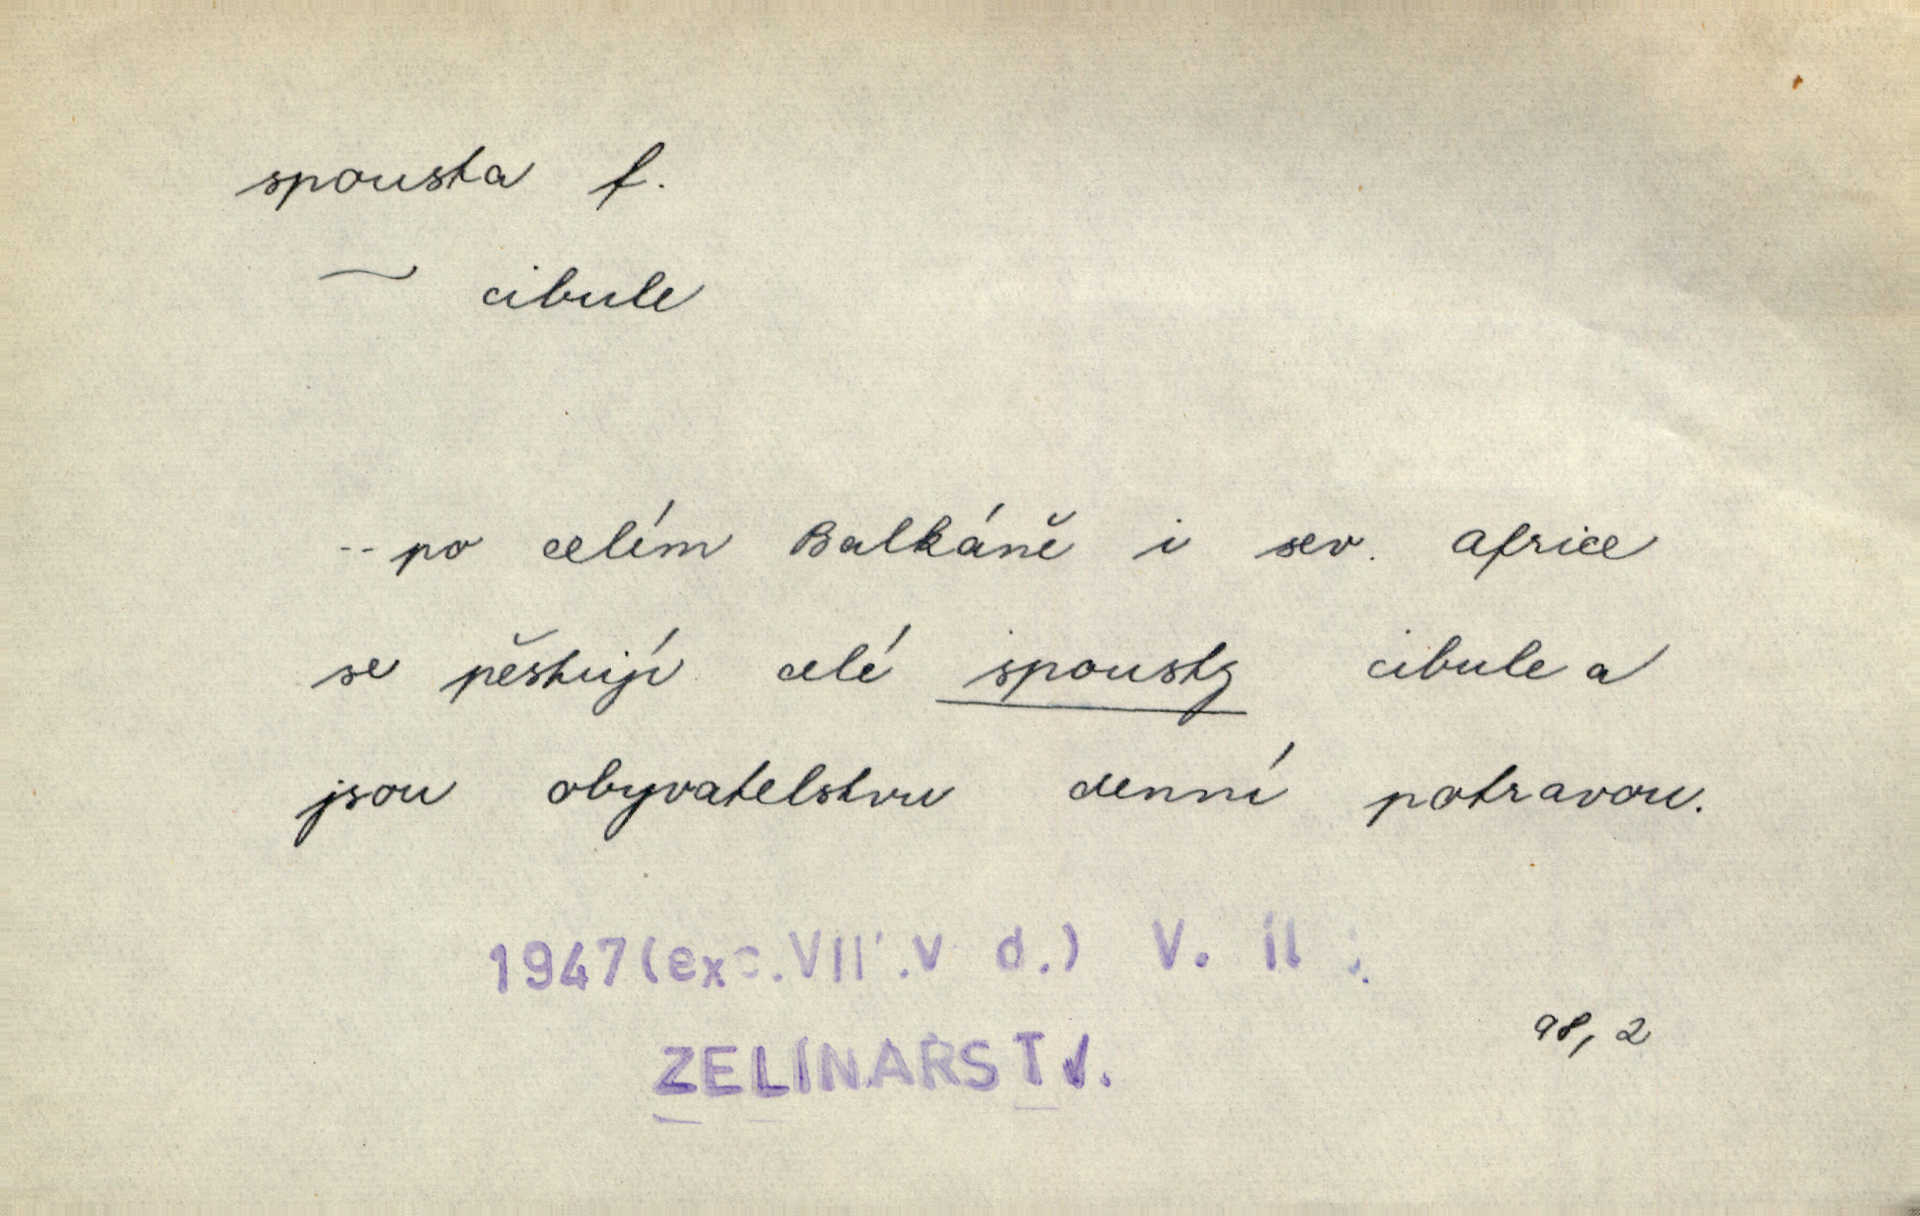 spousta f.
~ cibule
-- po celém Balkáně i sev. Africe
se pěstují celé spousty cibule a
jsou obyvatelstvu denní potravou.
1947 (exc. d.) V.
98, 2
ZELINARSTV.